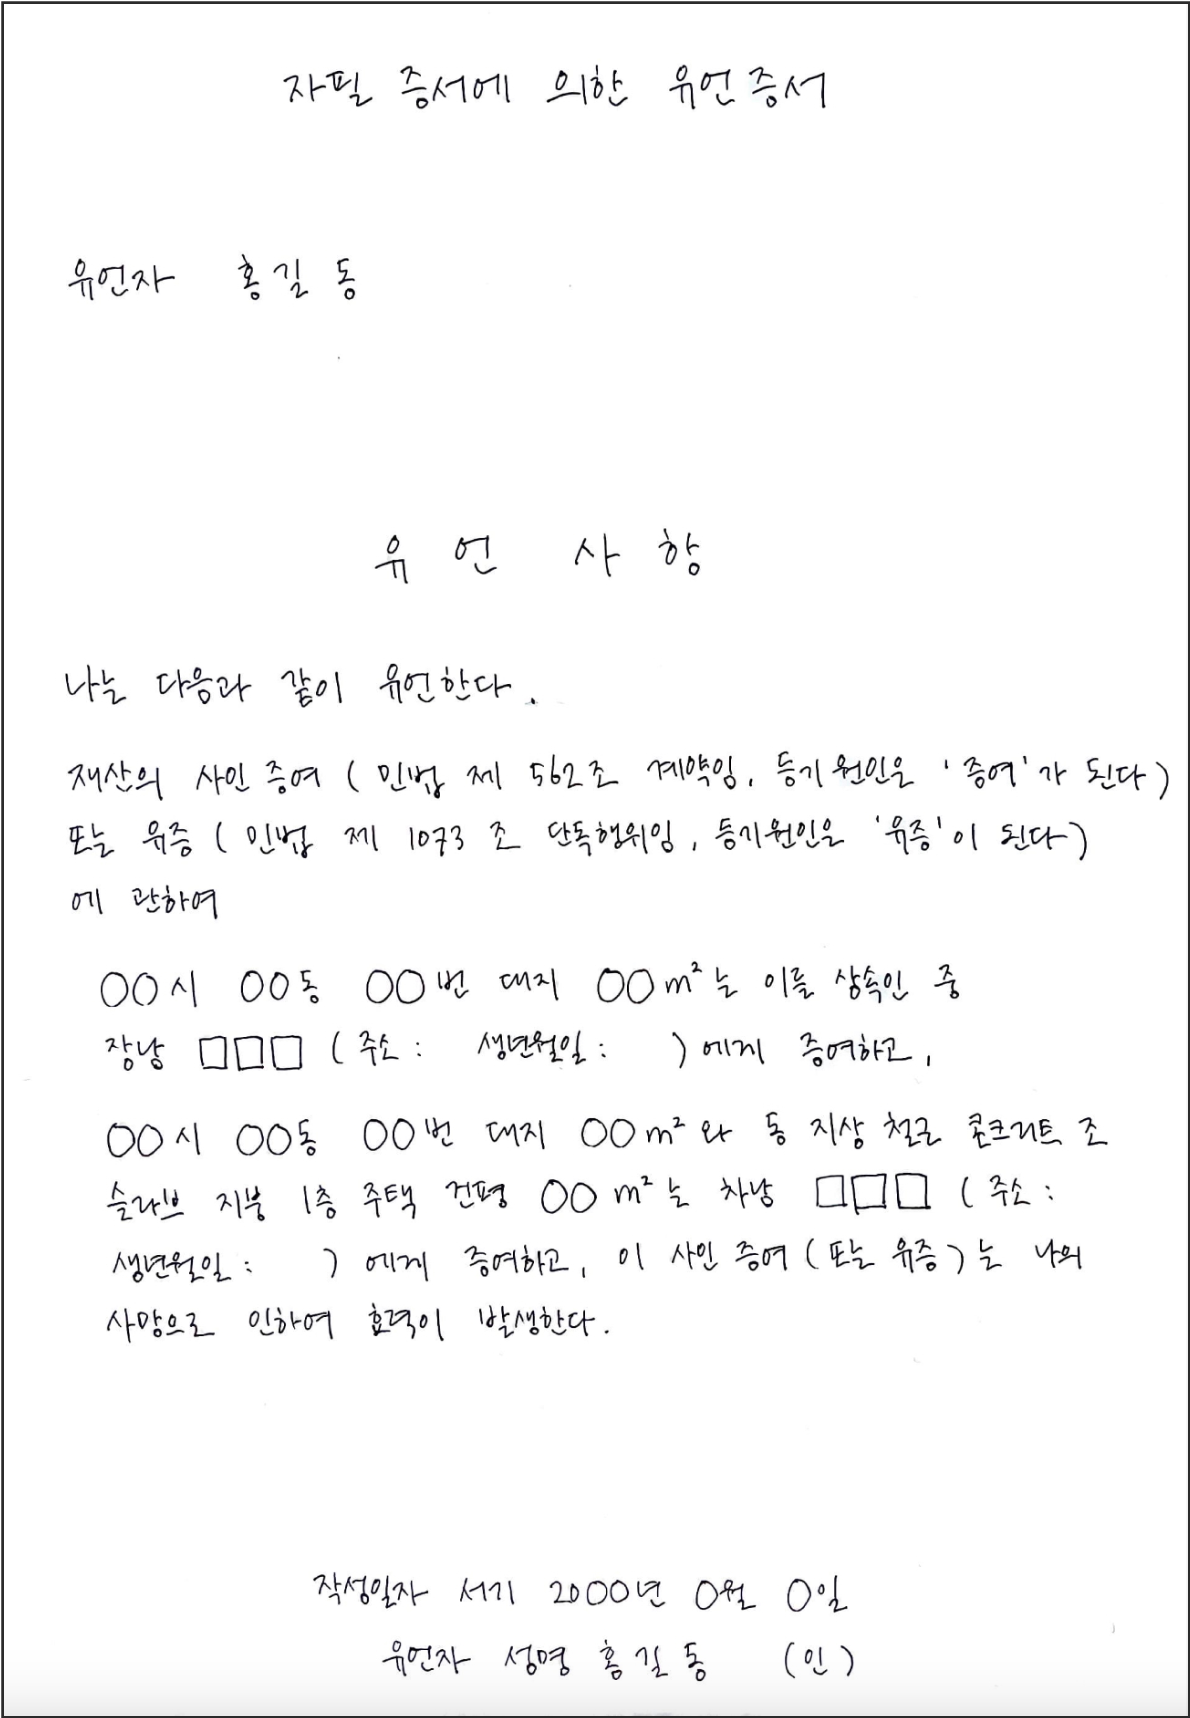 자필 증서에 의한 유언증서
유언자 홍길동
유언사항
나는 다음과 같이 유언한다.
재산의 사인증여 (민법 제 562조 계약임, 등기원인은 '증여'가 된다)
또는 유증 (민법 제 1073조 단독행위임, 등기원인은 '유증'이 된다)
에 관하여
○○시 ○○동 ○○번 대지 ○○m²는 이를 상속인 중
장남 □□□ (주소: 생년월일: )에게 증여하고,
○○시 ○○동 ○○번 대지 ○○m²와 동 지상 철근 콘크리트 조
슬라브 지붕 1층 주택 건평 ○○m²는 차남 □□□ (주소:
생년월일: )에게 증여하고, 이 사인증여(또는 유증)는 나의
사망으로 인하여 효력이 발생한다.
작성일자 서기 2000년 0월 0일
유언자 성명 홍길동 (인)